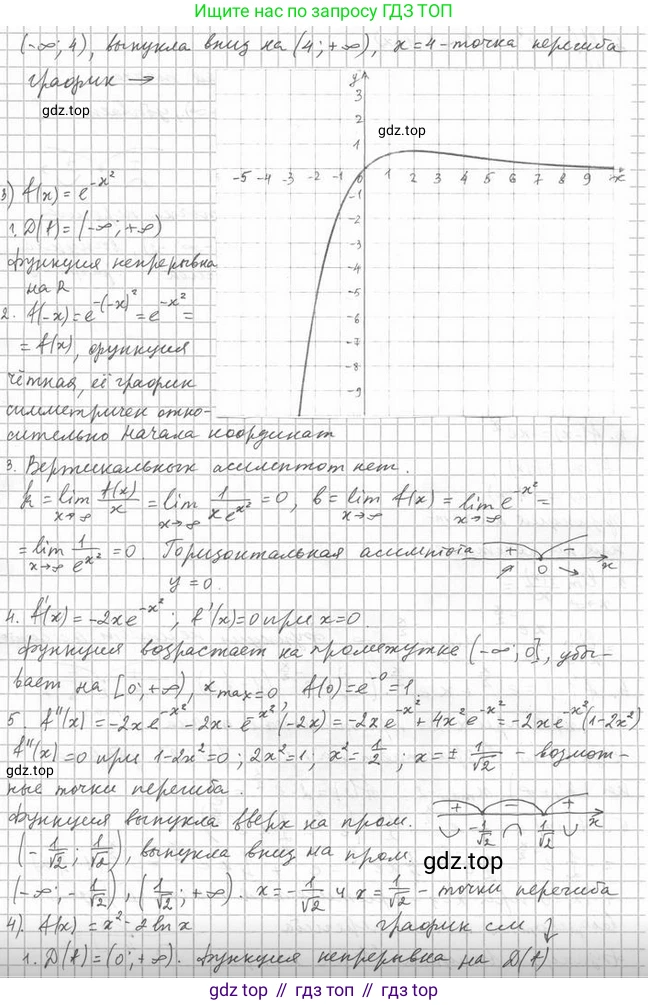 Ищите нас по запросу ГДЗ ТОП
(-∞; 4), выпукла вниз на (4; +∞), x = 4 - точка перегиба
график →
gdz.top
gdz.top
y
3
2
1
-5 -4 -3 -2 -1 0 1 2 3 4 5 6 7 8 9 x
-1
-2
-3
-4
-5
-6
-7
-8
-9
3) f(x) = e^{-x²}
1. D(f) = (-∞; +∞)
функция непрерывна
на R
2. f(-x) = e^{-(-x)²} = e^{-x²} =
= f(x), функция
чётная, её график
симметричен отно-
сительно начала координат
3. Вертикальных асимптот нет.
k = lim_{x→∞} f(x)/x = lim_{x→∞} 1/(x e^{x²}) = 0, b = lim_{x→∞} f(x) = lim_{x→∞} e^{-x²} =
= lim_{x→∞} 1/e^{x²} = 0. Горизонтальная асимптота
y = 0.
+ - 0 x
4. f'(x) = -2xe^{-x²}; f'(x) = 0 при x = 0.
функция возрастает на промежутке (-∞; 0], убы-
вает на [0; +∞), x_{max} = 0, f(0) = e^{-0} = 1.
5. f''(x) = -2xe^{-x²} - 2x · e^{-x²}(-2x) = -2xe^{-x²} + 4x²e^{-x²} = -2xe^{-x²}(1-2x²)
f''(x) = 0 при 1-2x² = 0; 2x² = 1, x² = 1/2; x = ± 1/√2 - возмож-
gdz.top
ные точки перегиба.
функция выпукла вверх на пром.
+ - + -1/√2 1/√2 x
(-1/√2; 1/√2), выпукла вниз на пром.
gdz.top
(-∞; -1/√2), (1/√2; +∞). x = -1/√2 и x = 1/√2 - точки перегиба
4). f(x) = x² - 2 ln x график см ↓
1. D(f) = (0; +∞). функция непрерывна на D(f)
gdz.top // гдз.топ // gdz.top // гдз.топ